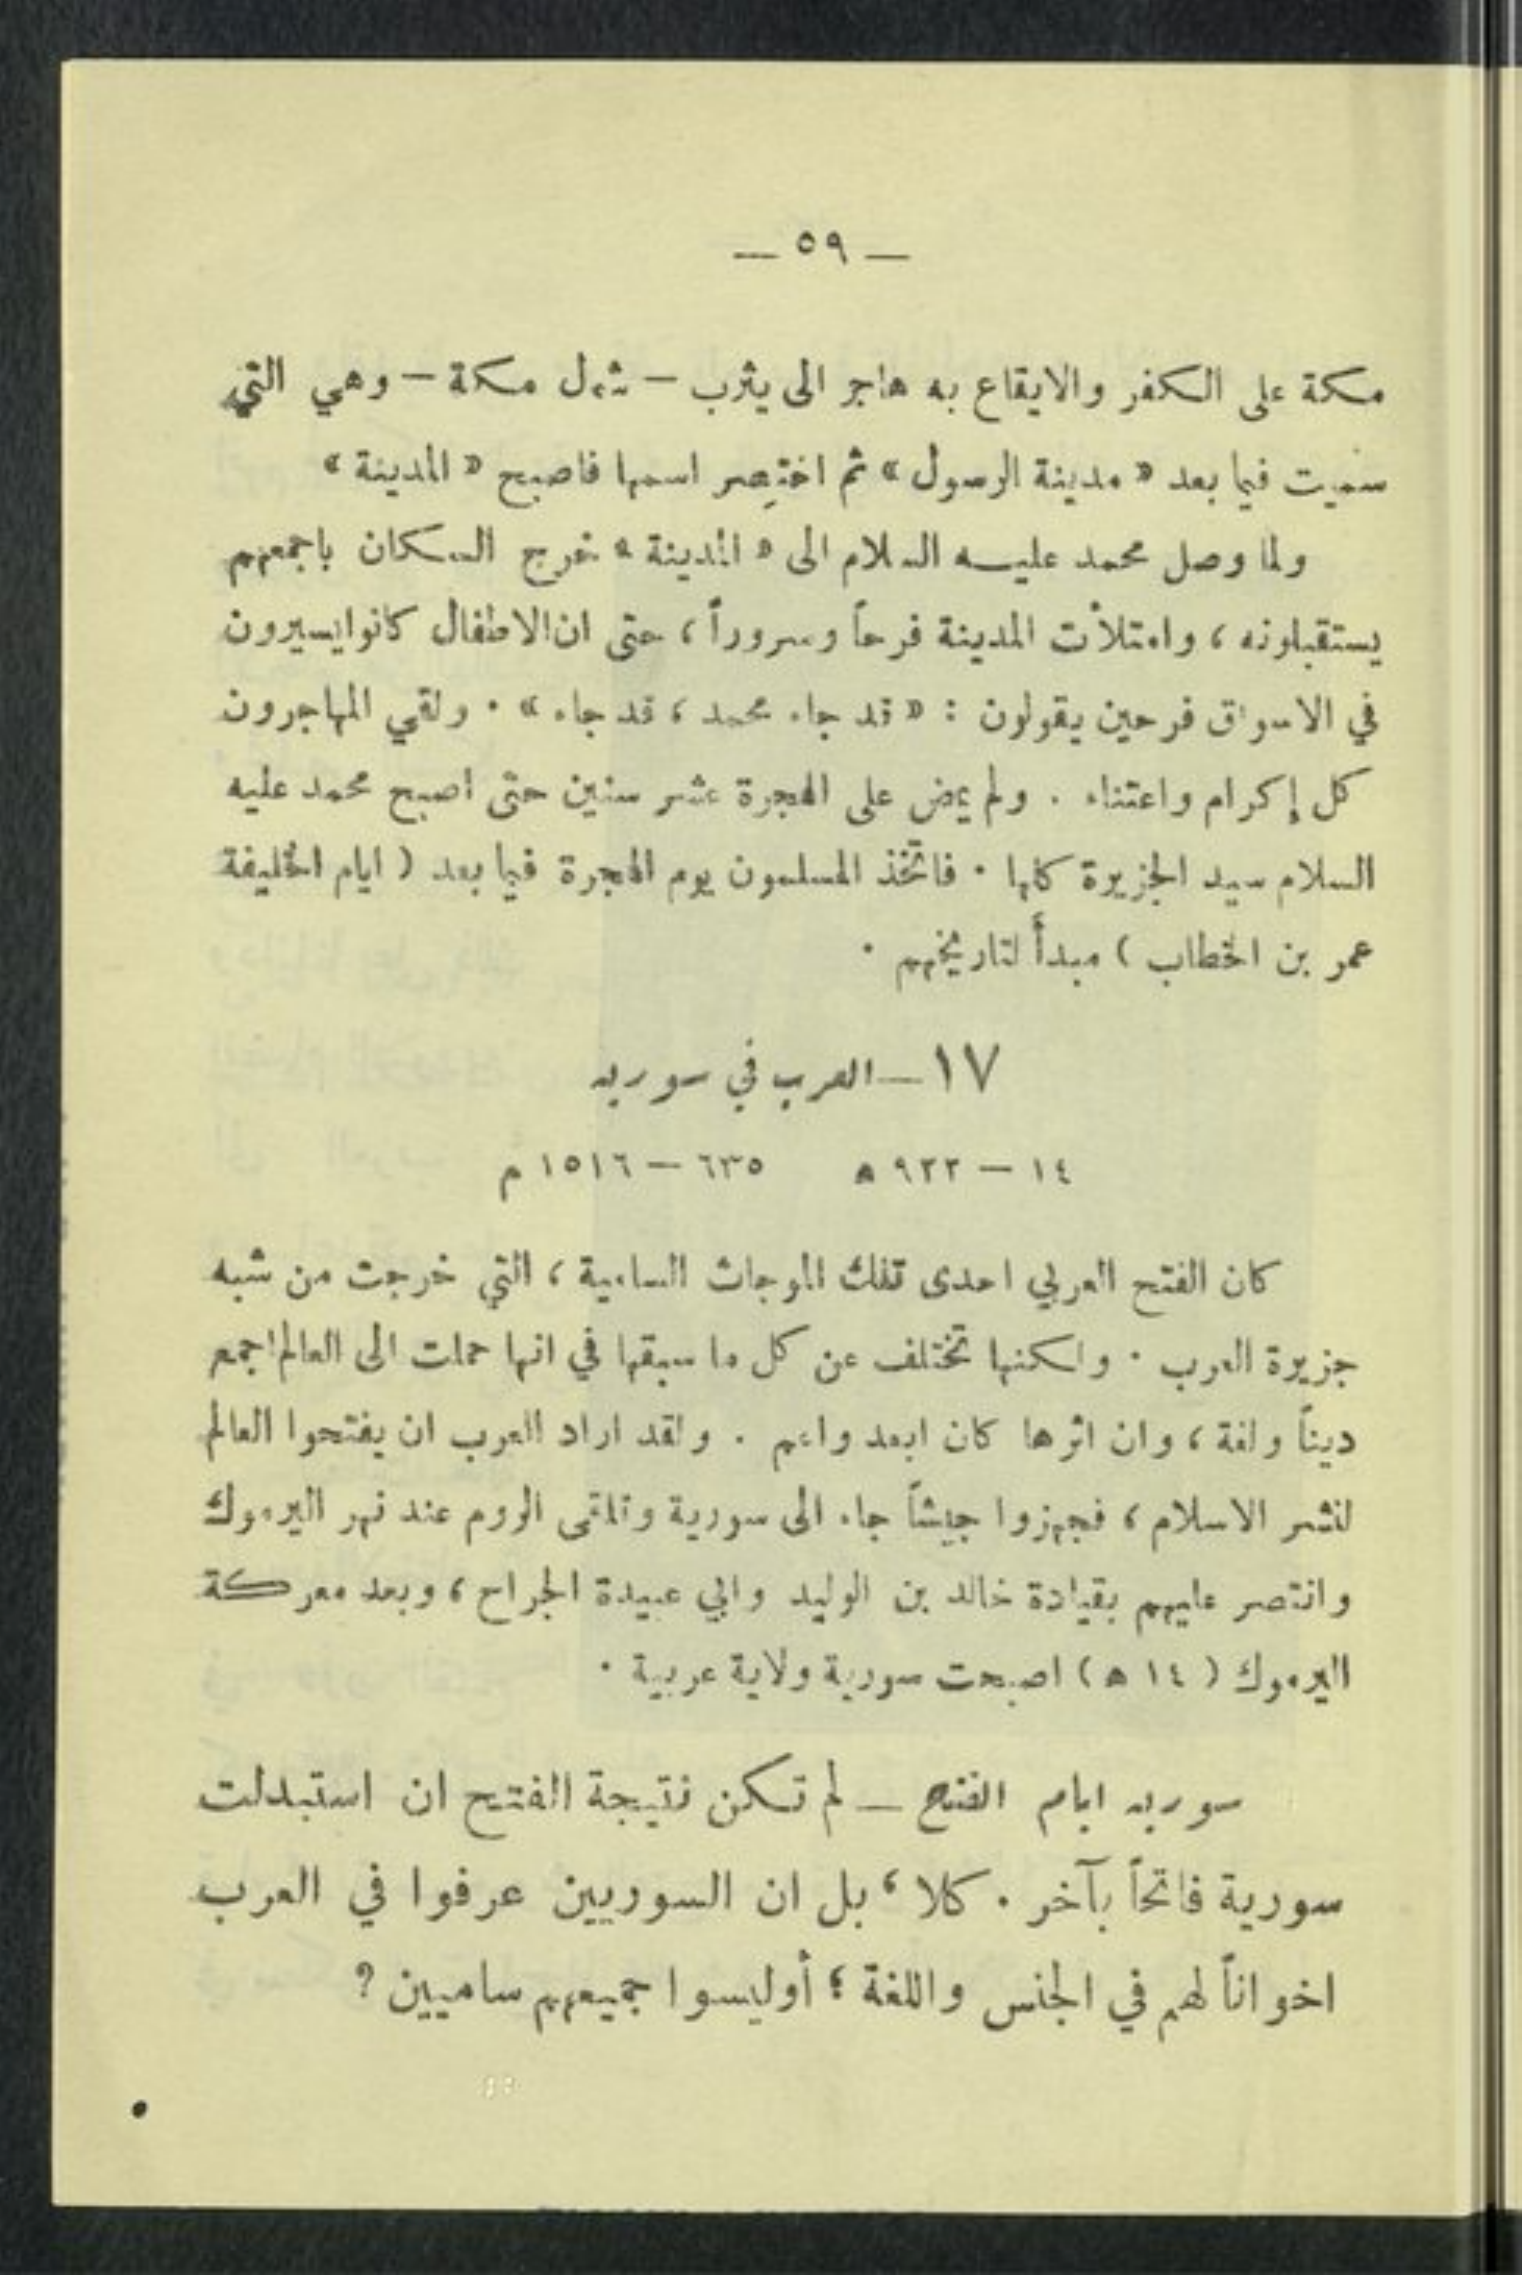 — ٥٩ —
مكة على الكفر والايقاع به هاجر الى يثرب — شمال مكة — وهي التي
سميت فيما بعد « مدينة الرسول » ثم اختصر اسمها فاصبح « المدينة »
ولما وصل محمد عليه السلام الى « المدينة » خرج السكان باجمعهم
يستقبلونه ، وامتلأت المدينة فرحاً وسروراً ، حتى ان الاطفال كانوا يسيرون
في الاسواق فرحين يقولون : « قد جاء محمد ، قد جاء » . ولقي المهاجرون
كل إكرام واعتناء . ولم يمض على الهجرة عشر سنين حتى اصبح محمد عليه
السلام سيد الجزيرة كلها . فاتخذ المسلمون يوم الهجرة فيما بعد ( ايام الخليفة
عمر بن الخطاب ) مبدأ لتاريخهم .
١٧ — العرب في سورية
١٤ — ٩٢٢ ه ٦٣٥ — ١٥١٦ م
كان الفتح العربي احدى تلك الموجات السامية ، التي خرجت من شبه
جزيرة العرب . ولكنها تختلف عن كل ما سبقها في انها حملت الى العالم اجمع
ديناً ولغة ، وان اثرها كان ابعد واعم . ولقد اراد العرب ان يفتحوا العالم
لنشر الاسلام ، فجهزوا جيشاً جاء الى سورية وتلاقى الروم عند نهر اليرموك
وانتصر عليهم بقيادة خالد بن الوليد وابي عبيدة الجراح ، وبعد معركة
اليرموك ( ١٤ ه ) اصبحت سورية ولاية عربية .
سورية ايام الفتح — لم تكن نتيجة الفتح ان استبدلت
سورية فاتحاً بآخر . كلا ، بل ان السوريين عرفوا في العرب
اخواناً لهم في الجنس واللغة ؛ أوليسوا جميعهم ساميين ?